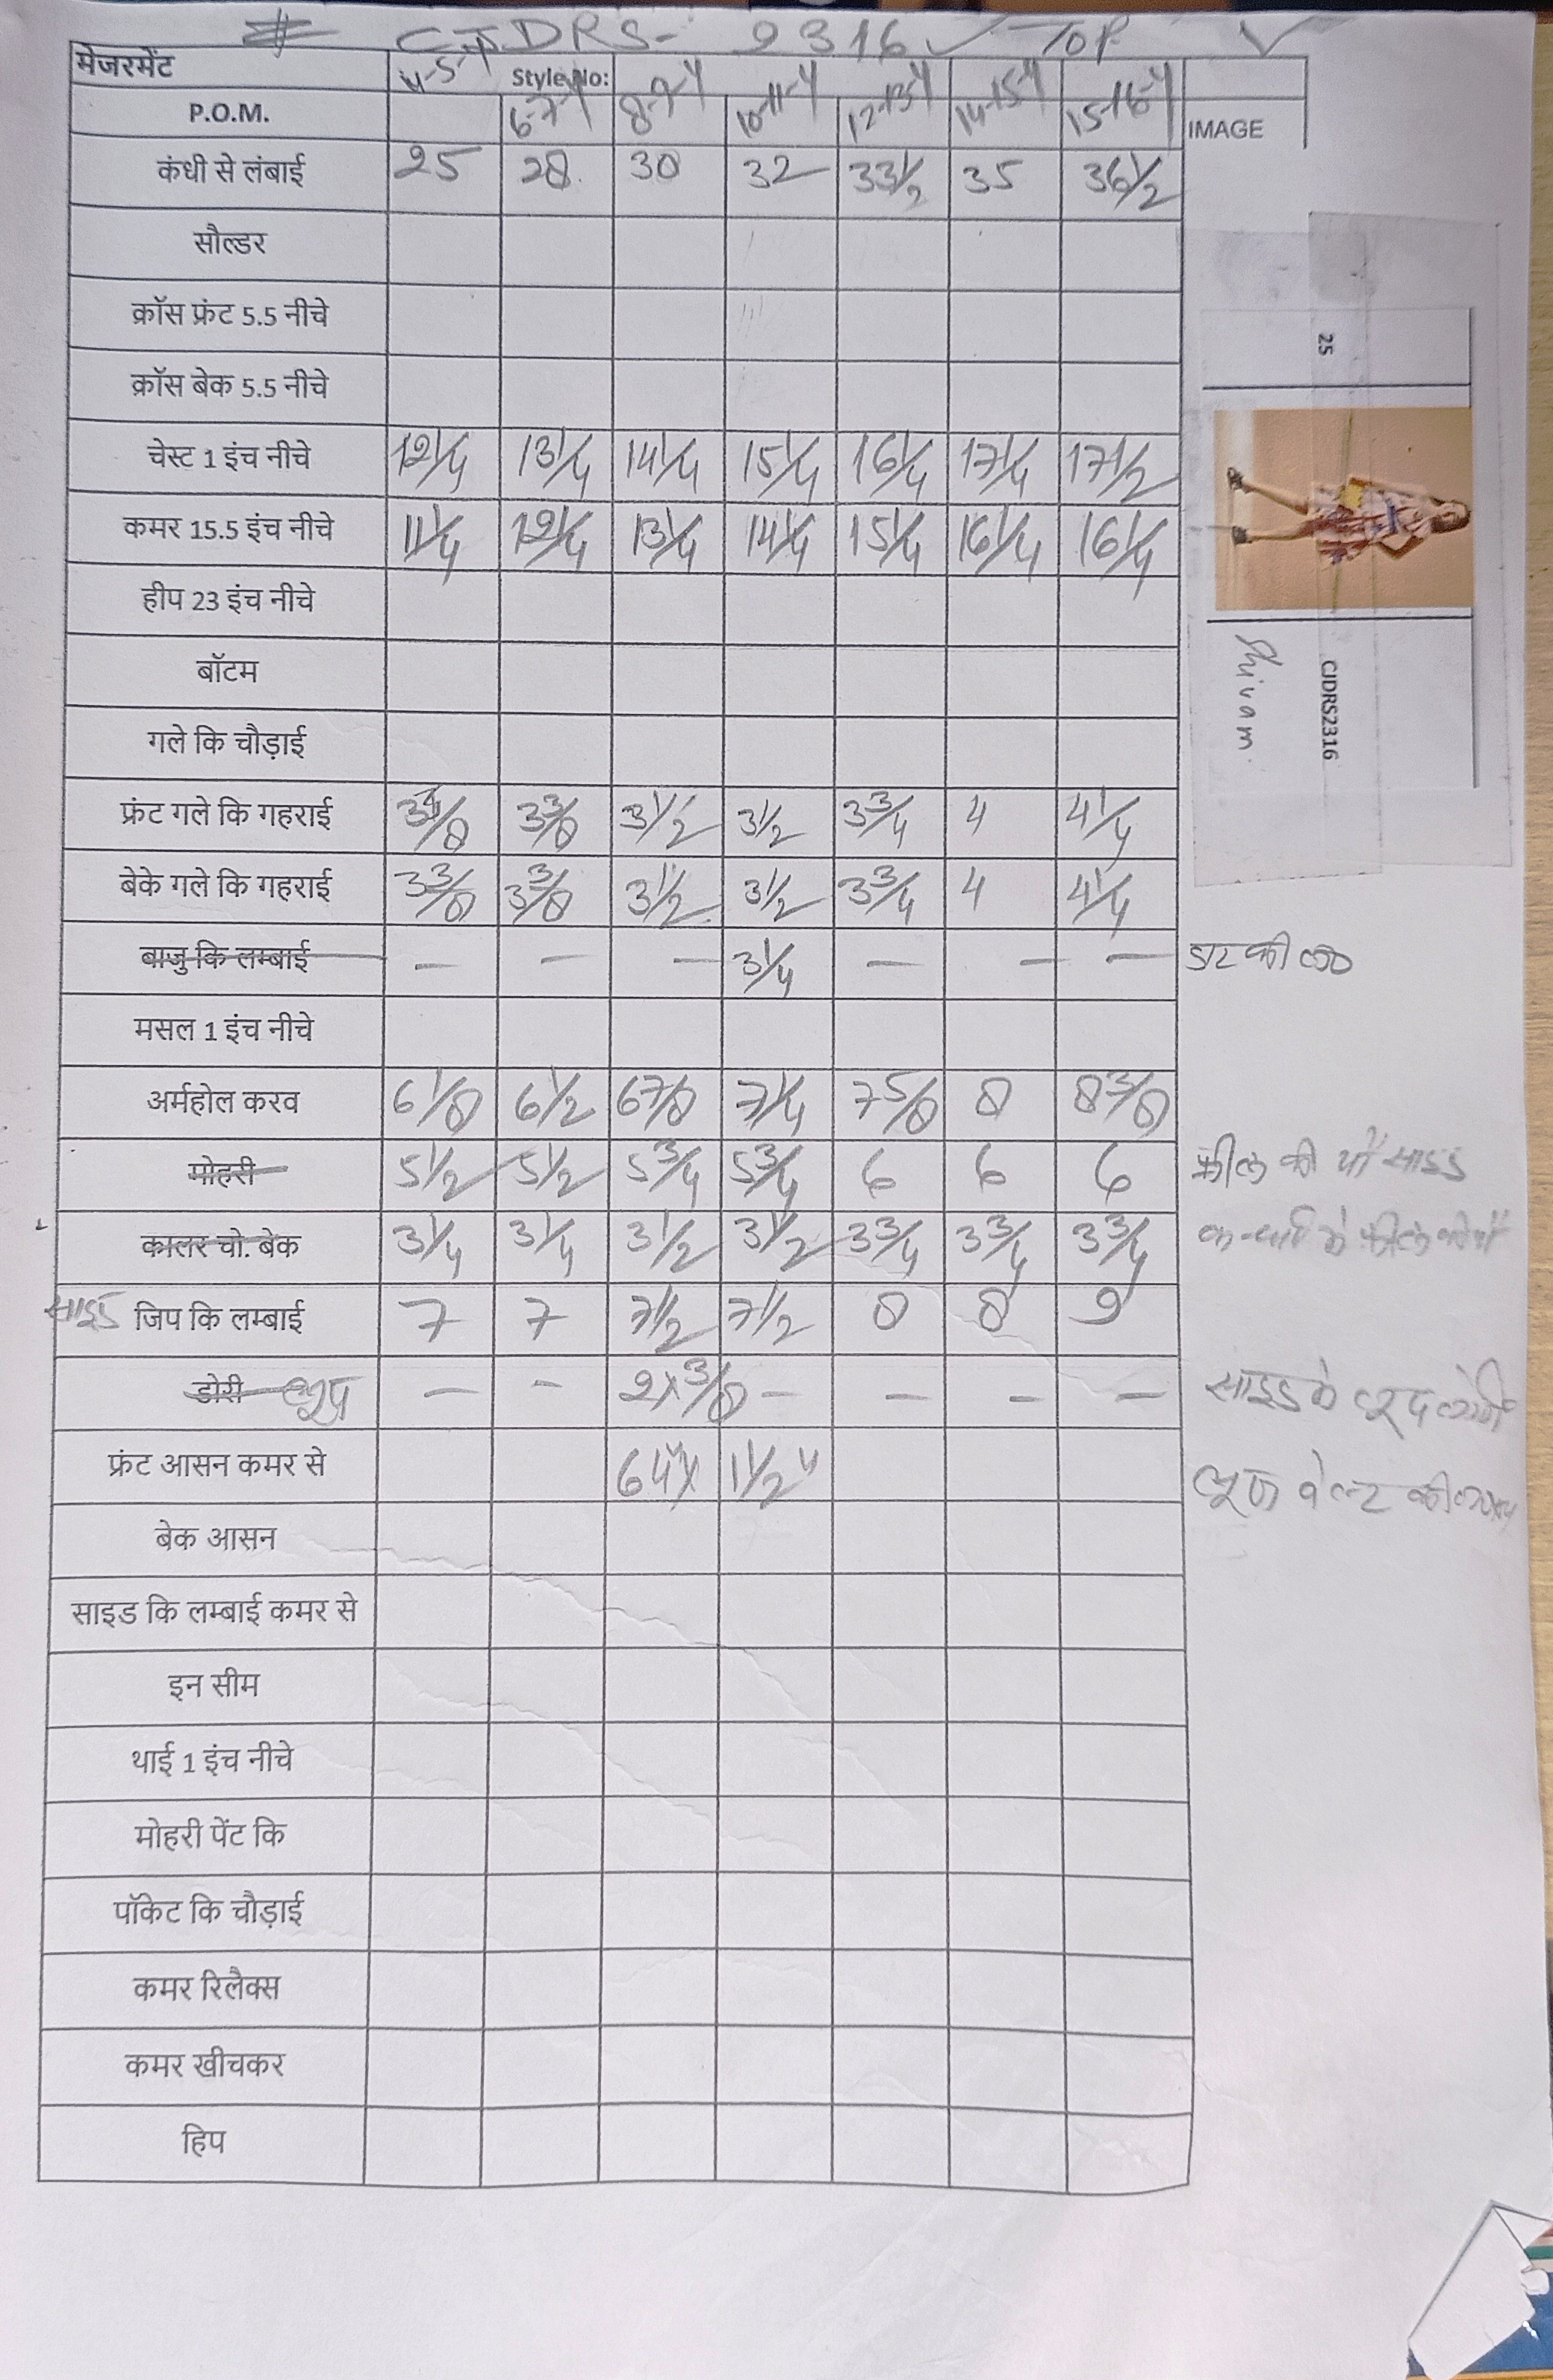 CJDRS- 2316 TOP
मेजरमेंट 4-5-Y Style No:
P.O.M. 6-7-Y 8-9-Y 10-11-Y 12-13-Y 14-15-Y 15-16-Y IMAGE
कंधी से लंबाई 25 28 30 32 33 1/2 35 36 1/2
सौल्डर
क्रॉस फ्रंट 5.5 नीचे
क्रॉस बेक 5.5 नीचे
चेस्ट 1 इंच नीचे 12 1/4 13 1/4 14 1/4 15 1/4 16 1/4 17 1/4 17 1/2
कमर 15.5 इंच नीचे 11 1/4 12 1/4 13 1/4 14 1/4 15 1/4 16 1/4 16 1/4
हीप 23 इंच नीचे
बॉटम
गले कि चौड़ाई
फ्रंट गले कि गहराई 3 3/8 3 3/8 3 1/2 3 1/2 3 3/4 4 4 1/4
बेके गले कि गहराई 3 3/8 3 3/8 3 1/2 3 1/2 3 3/4 4 4 1/4
बाजु कि लम्बाई — — — 3 1/4 — — — डाट की
मसल 1 इंच नीचे
अर्महोल करव 6 1/8 6 1/2 6 7/8 7 1/4 7 5/8 8 8 3/8
मोहरी 5 1/2 5 1/2 5 3/4 5 3/4 6 6 6 फ्रील की चौ साइड
कालर चो. बेक 3 1/4 3 1/4 3 1/2 3 1/2 3 3/4 3 3/4 3 3/4
साइड जिप कि लम्बाई 7 7 7 1/2 7 1/2 8 8 9
डोरी लूप — — 2 x 3/8 — — — — साइड के लूप
फ्रंट आसन कमर से 64" x 1 1/2" बेल्ट की
बेक आसन
साइड कि लम्बाई कमर से
इन सीम
थाई 1 इंच नीचे
मोहरी पेंट कि
पॉकेट कि चौड़ाई
कमर रिलैक्स
कमर खीचकर
हिप
25
CJDRS2316
Shivam